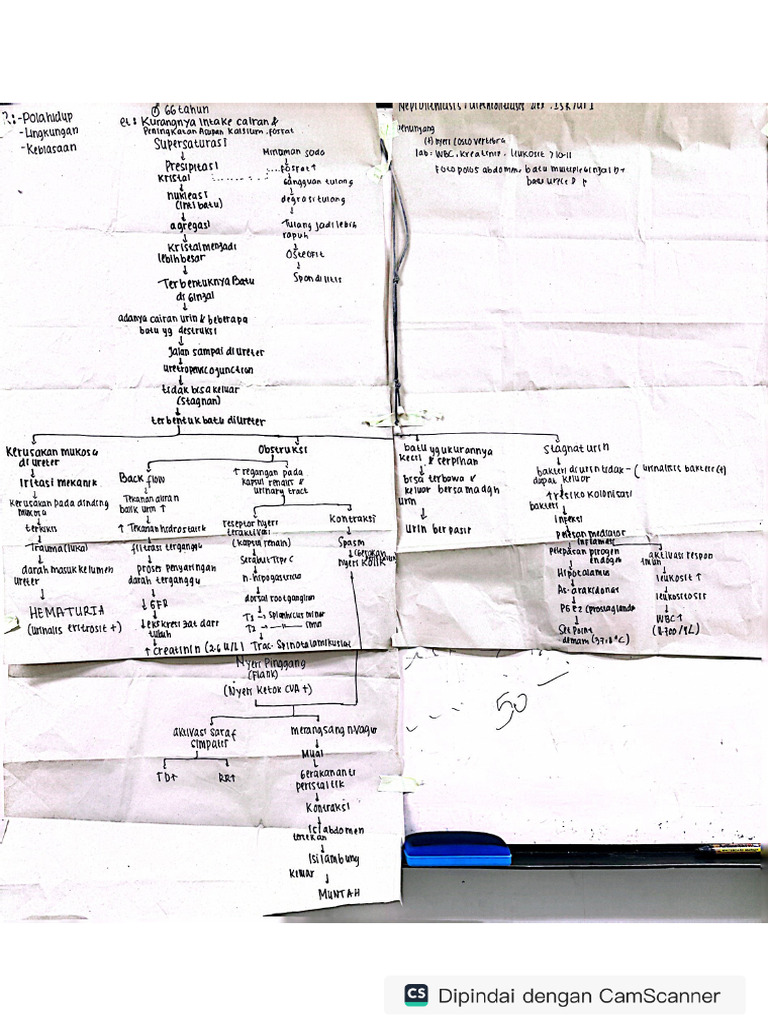 66 tahun
R: -Polahidup
-Lingkungan
-Kebiasaan
et: Kurangnya Intake cairan &
Peningkatan Asupan Kalsium, fosfat
Supersaturasi
Presipitasi
Kristal
nukleasi
(inti batu)
agregasi
Kristal menjadi
lebih besar
Terbentuknya Batu
di Ginjal
adanya cairan urin & beberapa
batu yg destruksi
Jalan sampai di ureter
tidak bisa keluar
(stagnan)
terbentuk batu di ureter
Minuman soda
fosfat ↑
Gangguan tulong
Tulang jadi lebih
rapuh
Osteofit
Spondilitis
(+) nyeri costo vertebra
lab: WBC, kreatinin, leukosit > 10-11
Foto polos abdomen
Kerusakan mukosa
di ureter
Iritasi mekanik
Kerusakan pada dinding
mukosa
terkikis
Trauma (luka)
darah masuk ke lumen
ureter
HEMATURIA
(urinalis eritrosit +)
Obstruksi
Back flow
Tekanan aliran
balik urin ↑
↑ Tekanan hidrostatik
filtrasi terganggu
proses penyaringan
darah terganggu
↓ GFR
↓ ekskresi zat dari
tubuh
↑ creatinin (2.6 u/L)
↑ regangan pada
kapsul renalis &
urinary tract
reseptor nyeri
teraktivasi
(kapsul renalis)
Serabut Tipe C
n. hipogastricus
dorsal root ganglion
Trac. Spinotalamikus lar
Kontraksi
Spasm
Nyeri Kolik
Nyeri Pinggang
(Flank)
(Nyeri Ketok CVA +)
aktivasi saraf
simpatis
TD↑
RR↑
merangsang n. vagus
Mual
Gerakan anti
peristaltik
Kontraksi
Isi abdomen
tertekan
Isi lambung
keluar
MUNTAH
batu yg ukurannya
kecil & serpihan
bisa terbawa &
keluar bersama dgn
urin
Urin berpasir
Stagnat urin
bakteri di urin tidak
dapat keluar
(urinalisis bakteri (+)
↑ resiko kolonisasi
bakteri
Infeksi
Pelepasan mediator
inflamasi
Pelepasan pirogen
endogen
Hipotalamus
As. arakidonat
PGE2 (prostaglandin
Set Point
demam (37.8°C)
aktivasi respon
imun
leukosit ↑
leukositosis
WBC ↑
50
CS Dipindai dengan CamScanner